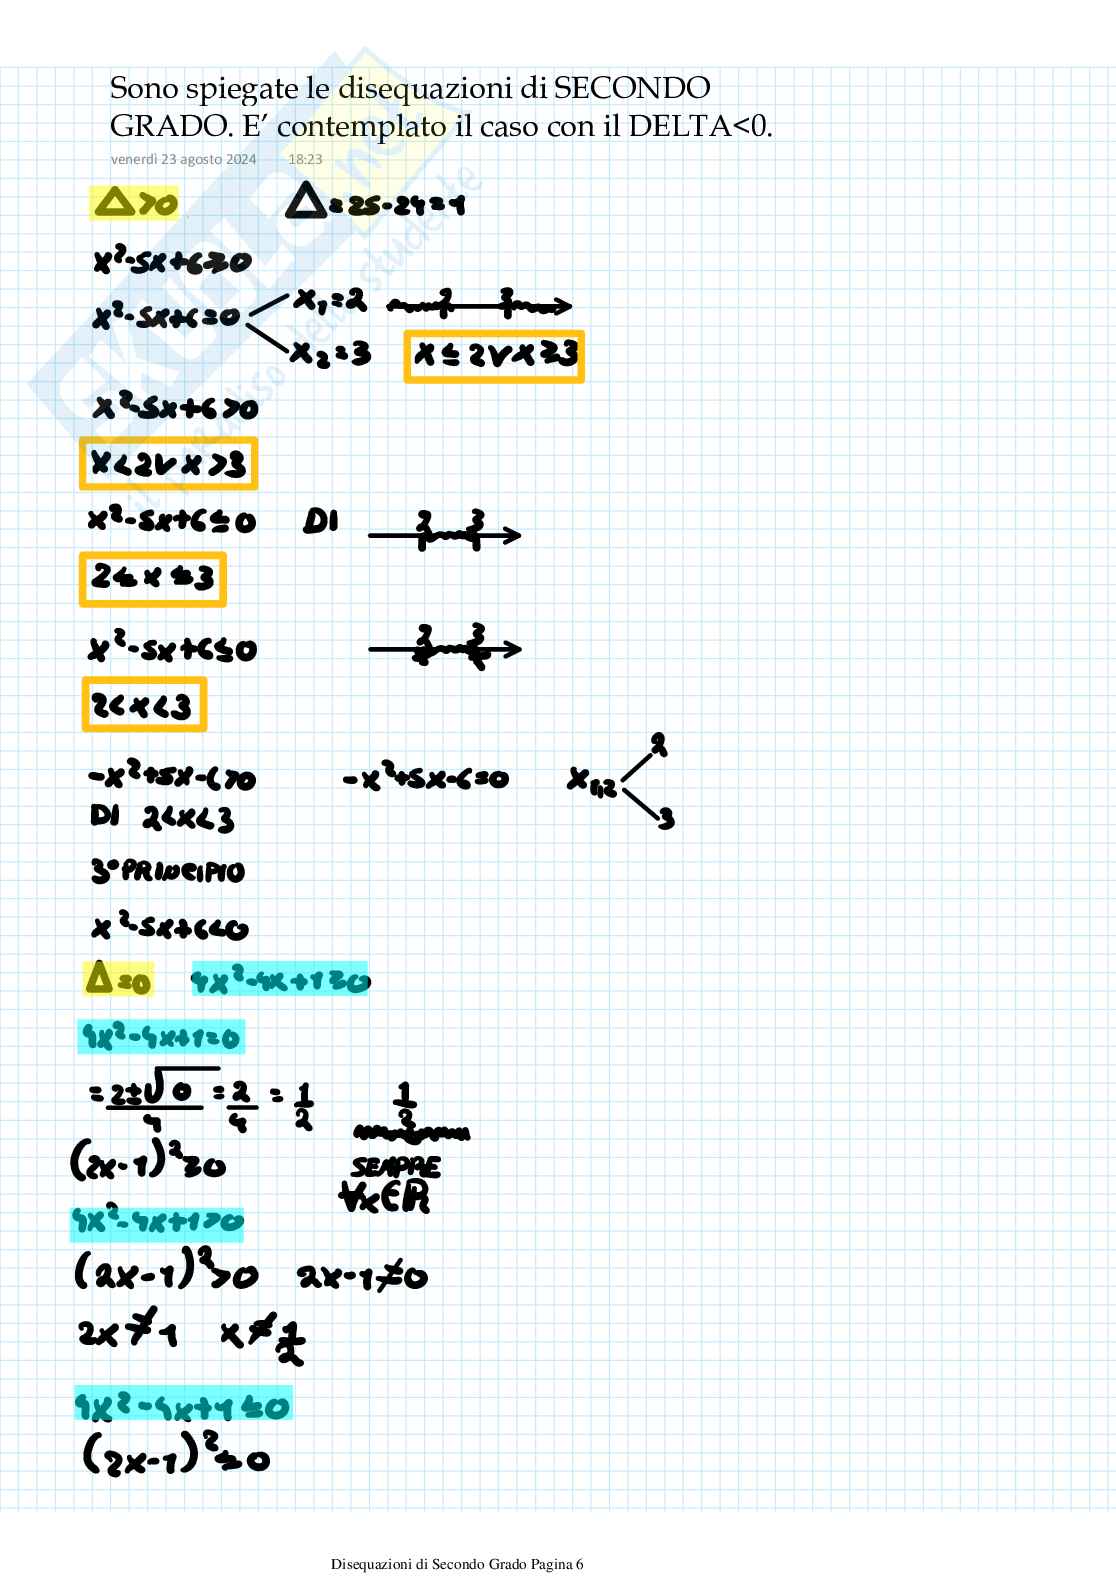 Sono spiegate le disequazioni di SECONDO
GRADO. E’ contemplato il caso con il DELTA<0.
venerdì 23 agosto 2024 18:23
Δ>0 Δ=25-24=1
x²-5x+6≥0
x²-5x+6=0 x₁=2 2 3
x₂=3 x≤2∨x≥3
x²-5x+6>0
x<2∨x>3
x²-5x+6≤0 DI 2 3
2≤x≤3
x²-5x+6≤0 2 3
2<x<3
-x²+5x-6>0 -x²+5x-6=0 x₁,₂ 2
3
DI 2<x<3
3°PRINCIPIO
x²-5x+6<0
Δ=0 4x²-4x+1≥0
4x²-4x+1=0
=2±√0/4=2/4=1/2 1/2
(2x-1)²≥0 SEMPRE
∀x∈ℝ
4x²-4x+1>0
(2x-1)²>0 2x-1≠0
2x≠1 x≠1/2
4x²-4x+1≤0
(2x-1)²≤0
Disequazioni di Secondo Grado Pagina 6
SKUOLA.net
il paradiso dello studente